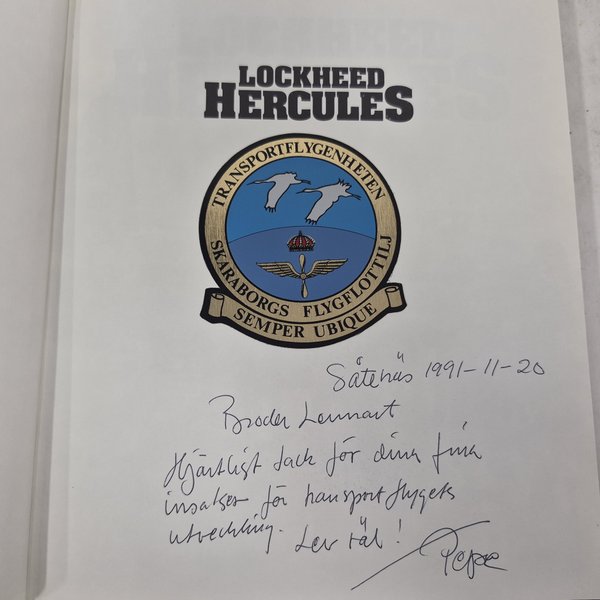 LOCKHEED
HERCULES
TRANSPORTFLYGENHETEN
SKARABORGS FLYGFLOTTILJ
SEMPER UBIQUE
Såtenäs 1991-11-20
Broder Lennart
Hjärtligt tack för dina fina
insatser för transportflygets
utveckling. Lev väl!